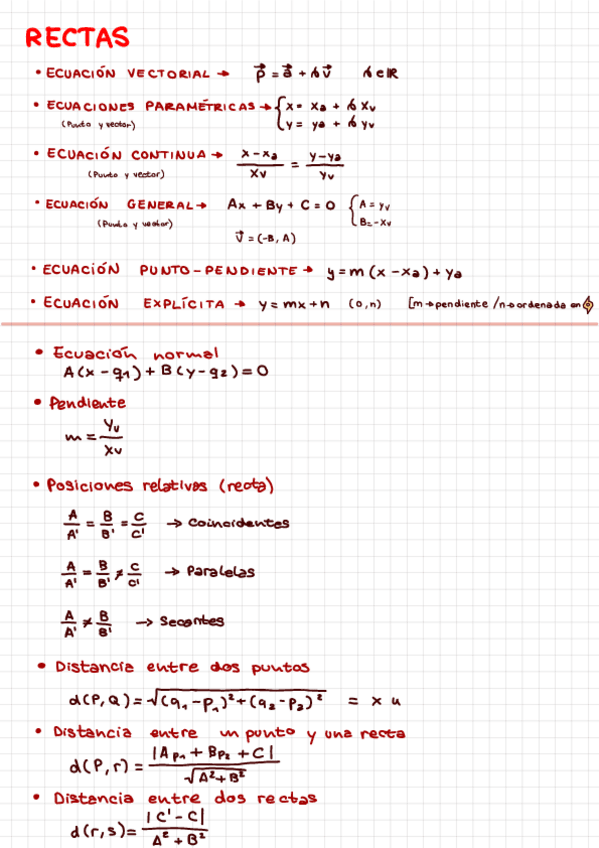 RECTAS
• ECUACIÓN VECTORIAL → p⃗ = a⃗ + λv⃗ λ∈ℝ
• ECUACIONES PARAMÉTRICAS → { x = xa + λxv
(Punto y vector) y = ya + λyv
• ECUACIÓN CONTINUA → (x-xa)/xv = (y-ya)/yv
(Punto y vector)
• ECUACIÓN GENERAL → Ax + By + C = 0 { A = yv
(Punto y vector) B = -xv
v⃗ = (-B, A)
• ECUACIÓN PUNTO-PENDIENTE → y = m(x-xa) + ya
• ECUACIÓN EXPLÍCITA → y = mx+n (0,n) [m→pendiente / n→ordenada en
• Ecuación normal
A(x-q1) + B(y-q2) = 0
• Pendiente
m = yv/xv
• Posiciones relativas (recta)
A/A' = B/B' = C/C' → Coincidentes
A/A' = B/B' ≠ C/C' → Paralelas
A/A' ≠ B/B' → Secantes
• Distancia entre dos puntos
d(P,Q) = √((q1-p1)²+(q2-p2)²) = x u
• Distancia entre un punto y una recta
d(P,r) = |Ap1 + Bp2 + C| / √(A²+B²)
• Distancia entre dos rectas
d(r,s) = |C'-C| / A²+B²